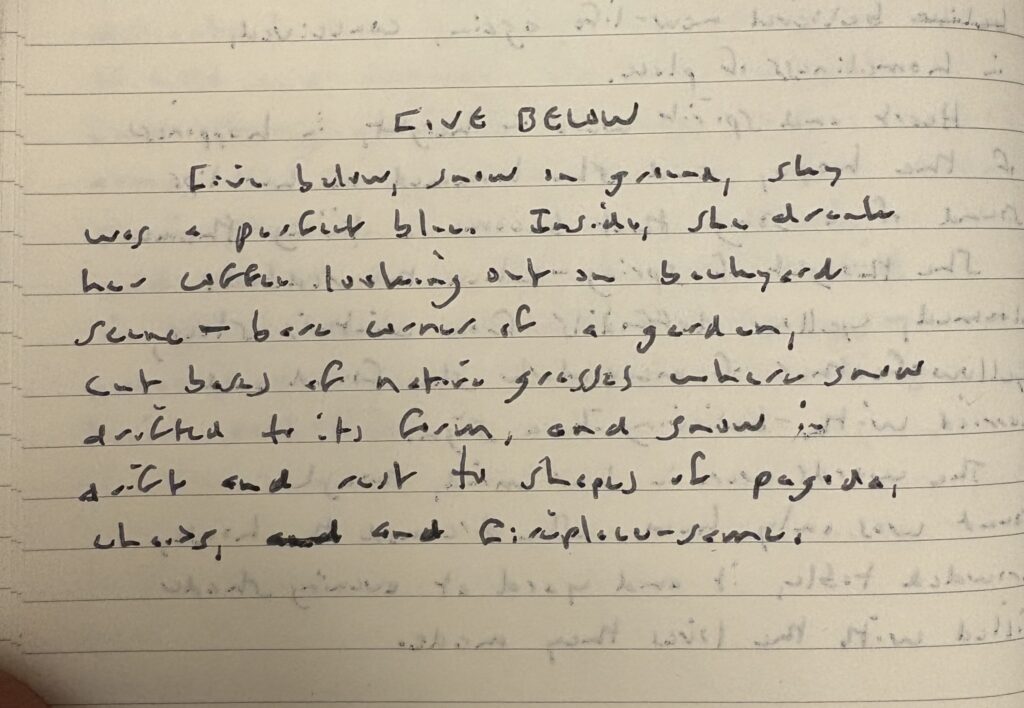 FIVE BELOW
Five below, snow on ground, sky
was a perfect blue. Inside, she drank
her coffee looking out on backyard
scene - bare corner of a garden,
cut bases of native grasses where snow
drifted to its form, and snow in
drift and rest to shapes of pagoda,
chairs, and fireplace-same.